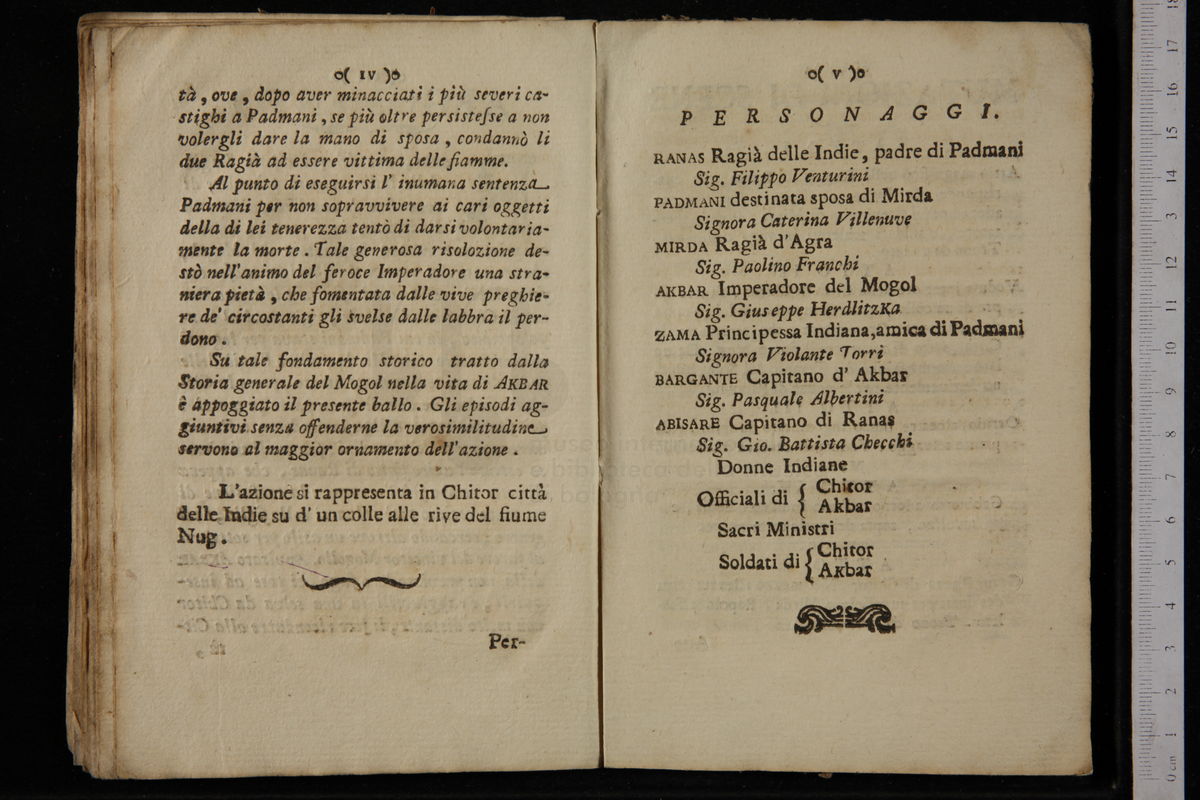 o( IV )o
tà, ove, dopo aver minacciati i più severi ca-
stighi a Padmani, se più oltre persistesse a non
volergli dare la mano di sposa, condannò li
due Ragià ad essere vittima delle fiamme.
Al punto di eseguirsi l' inumana sentenza
Padmani per non sopravvivere ai cari oggetti
della di lei tenerezza tentò di darsi volontaria-
mente la morte. Tale generosa risolozione de-
stò nell'animo del feroce Imperadore una stra-
niera pietà, che fomentata dalle vive preghie-
re de' circostanti gli svelse dalle labbra il per-
dono.
Su tale fondamento storico tratto dalla
Storia generale del Mogol nella vita di AKBAR
è appoggiato il presente ballo. Gli episodi ag-
giuntivi senza offenderne la verosimilitudine
servono al maggior ornamento dell'azione.
L'azione si rappresenta in Chitor città
delle Indie su d' un colle alle rive del fiume
Nug.
Per-
o( V )o
PERSONAGGI.
RANAS Ragià delle Indie, padre di Padmani
Sig. Filippo Venturini
PADMANI destinata sposa di Mirda
Signora Caterina Villenuve
MIRDA Ragià d'Agra
Sig. Paolino Franchi
AKBAR Imperadore del Mogol
Sig. Giuseppe HerdlitzKa
ZAMA Principessa Indiana, amica di Padmani
Signora Violante Torri
BARGANTE Capitano d' Akbar
Sig. Pasquale Albertini
ABISARE Capitano di Ranas
Sig. Gio. Battista Checchi
Donne Indiane
Officiali di { Chitor
Akbar
Sacri Ministri
Soldati di { Chitor
Akbar
0 cm 1 2 3 4 5 6 7 8 9 10 11 12 13 14 15 16 17 18